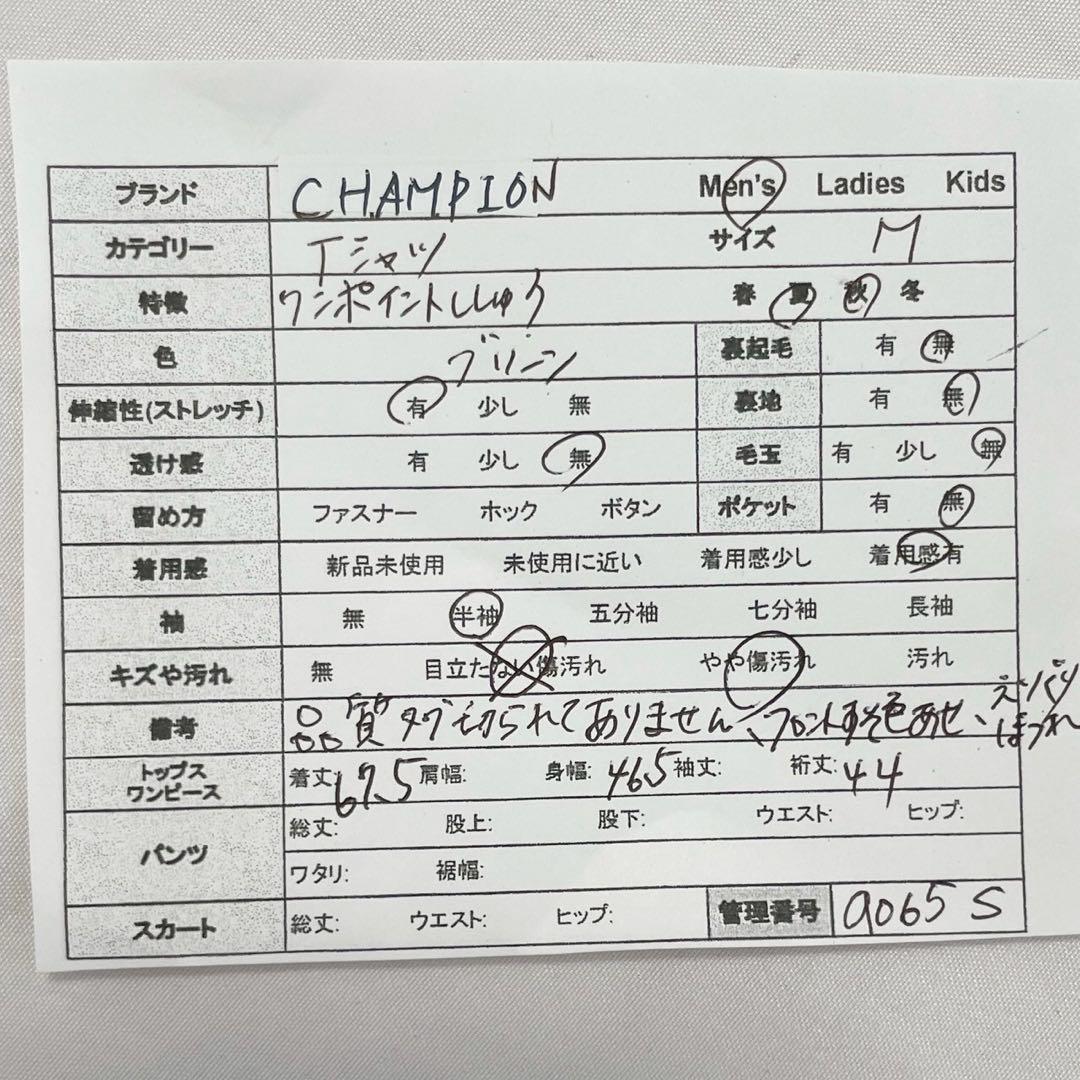 ブランド CHAMPION Men's Ladies Kids
カテゴリー Tシャツ サイズ M
特徴 ワンポイントししゅう 春 夏 秋 冬
色 グリーン 裏起毛 有 無
伸縮性(ストレッチ) 有 少し 無 裏地 有 無
透け感 有 少し 無 毛玉 有 少し 無
留め方 ファスナー ホック ボタン ポケット 有 無
着用感 新品未使用 未使用に近い 着用感少し 着用感有
袖 無 半袖 五分袖 七分袖 長袖
キズや汚れ 無 目立たない傷汚れ やや傷汚れ 汚れ
備考 品質タグ切られてありません、フロントすそ色あせ、えりパリほつれ
トップス ワンピース 着丈: 67.5 肩幅: 身幅: 46.5 袖丈: 裄丈: 44
パンツ 総丈: 股上: 股下: ウエスト: ヒップ:
ワタリ: 裾幅:
スカート 総丈: ウエスト: ヒップ: 管理番号 a065 S